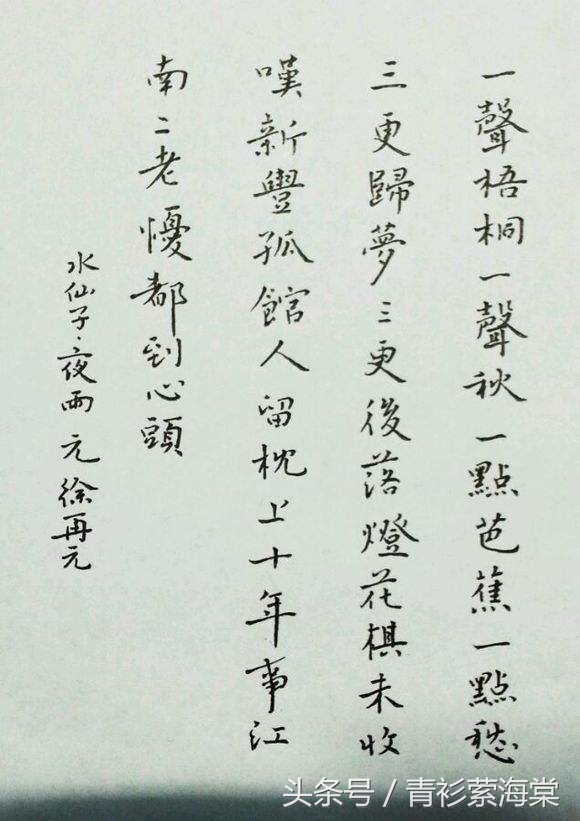 一聲梧桐一聲秋一點芭蕉一點愁
三更歸夢三更後落燈花棋未收
嘆新豐孤館人留枕上十年事江
南二老憂都到心頭
水仙子·夜雨 元 徐再元
头条号 / 青衫萦海棠